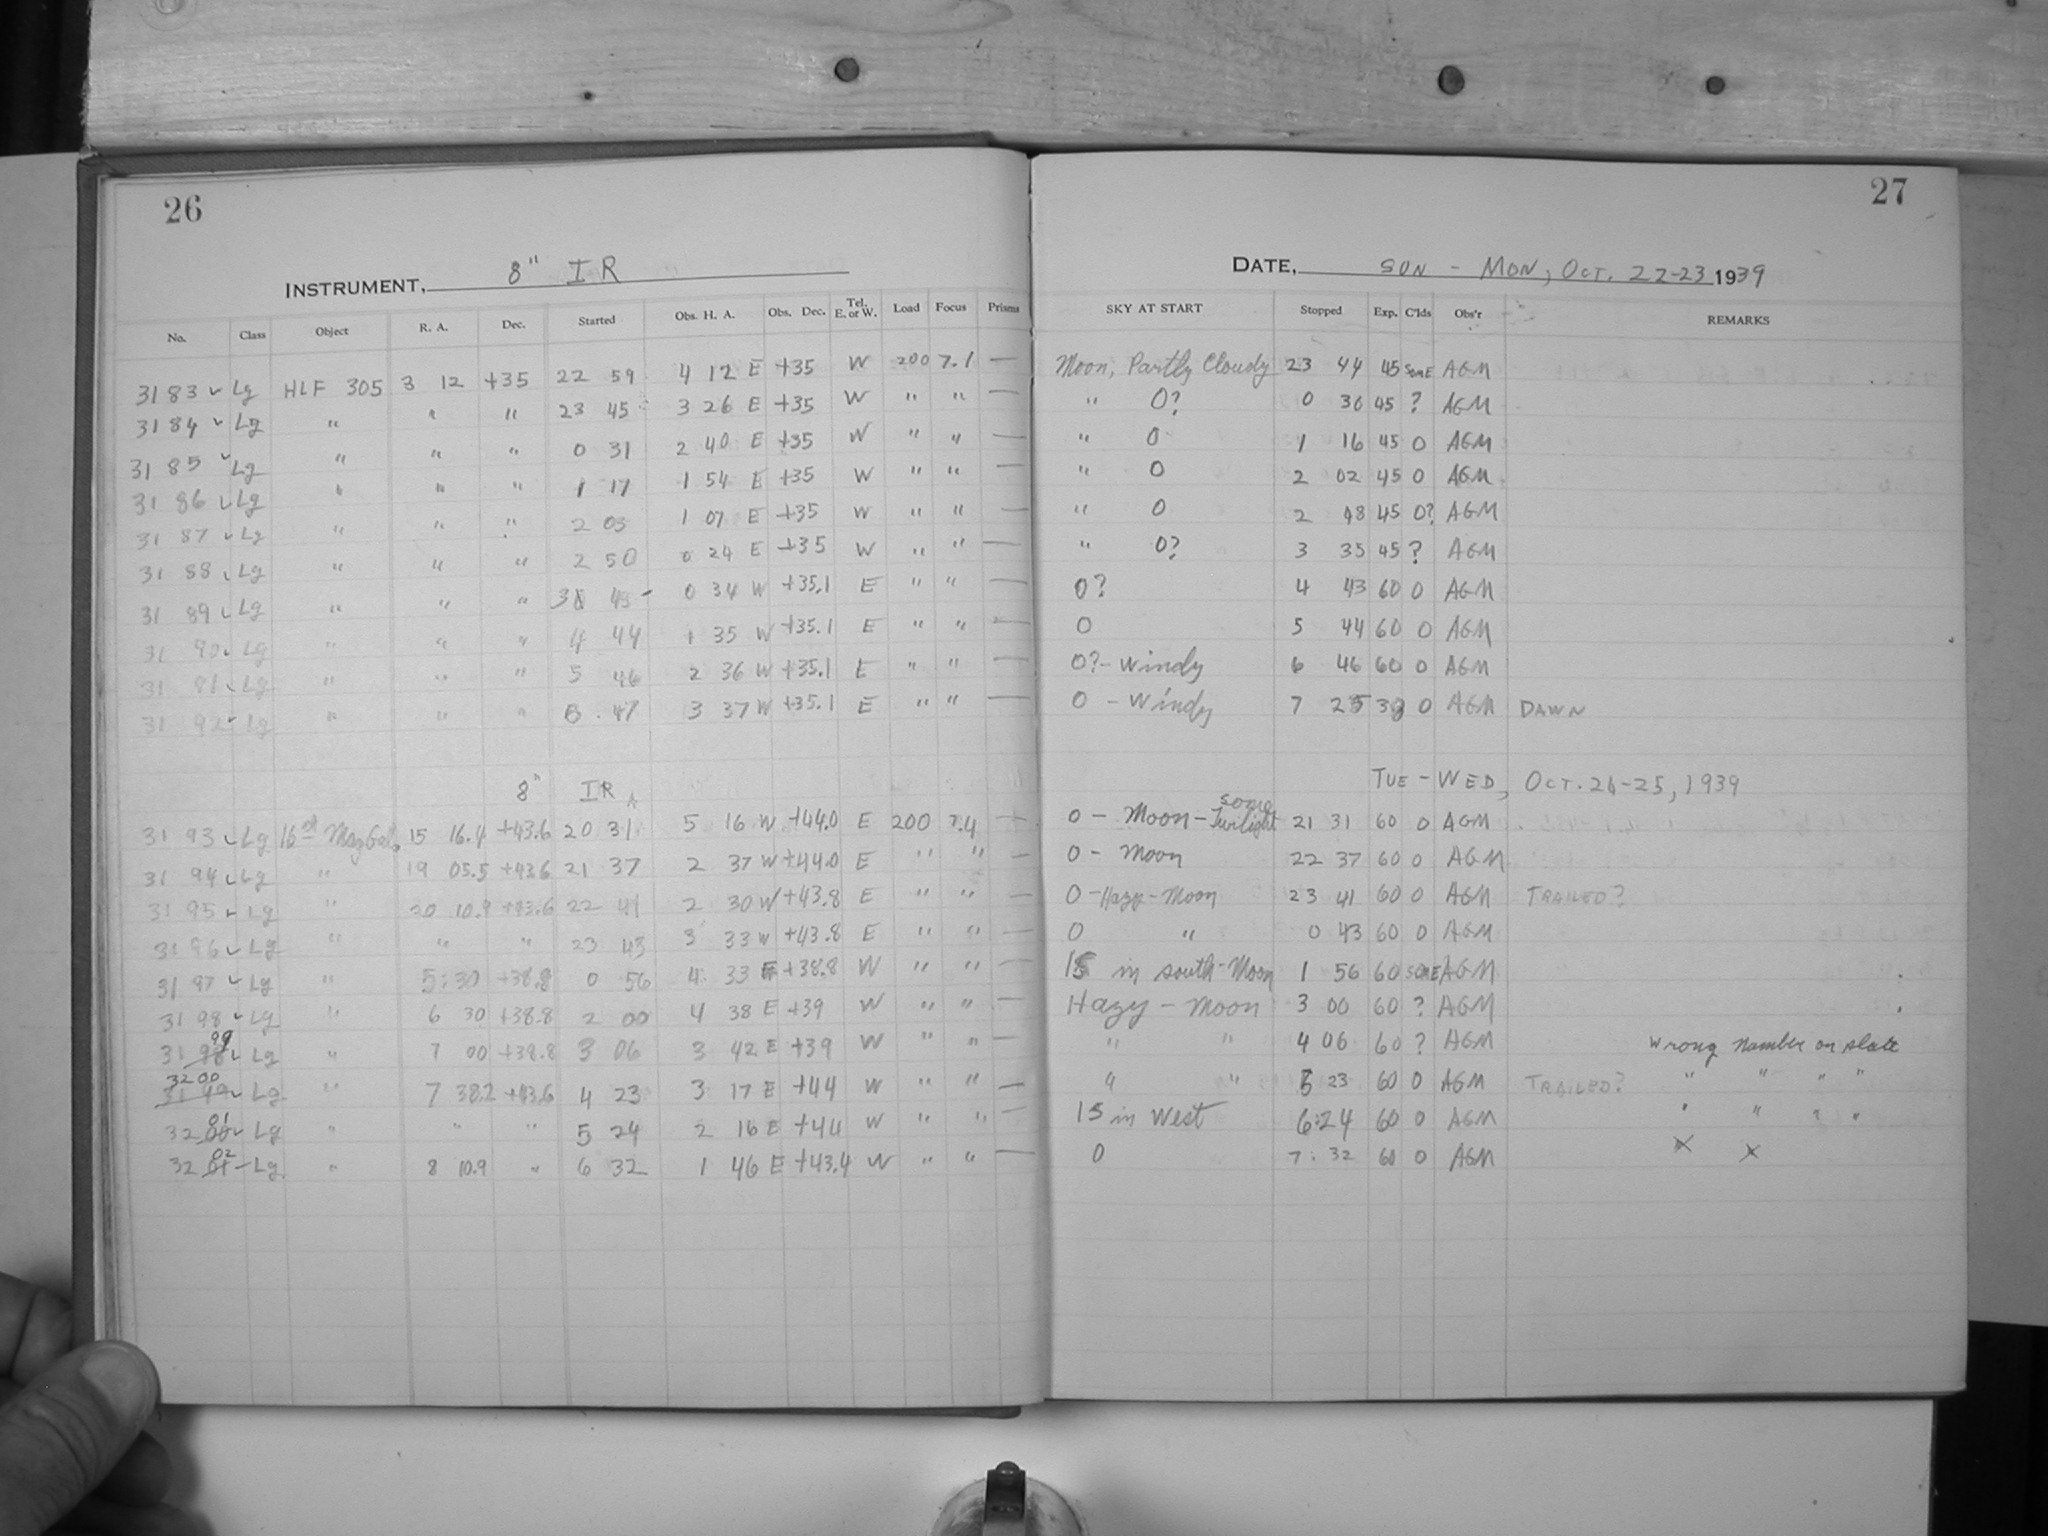 26
INSTRUMENT, 8" IR
No. Class Object R. A. Dec. Started Obs. H. A. Obs. Dec. Tel. E. or W. Load Focus Prisms
3183 ✓ Lg HLF 305 3 12 +35 22 59 4 12 E +35 W 200 7.1 —
3184 ✓ Lg " " " 23 45 3 26 E +35 W " " —
3185 ✓ Lg " " " 0 31 2 40 E +35 W " " —
3186 ✓ Lg " " " 1 17 1 54 E +35 W " " —
3187 ✓ Lg " " " 2 03 1 07 E +35 W " " —
3188 ✓ Lg " " " 2 50 0 24 E +35 W " " —
3189 ✓ Lg " " " 3 43 0 34 W +35.1 E " " —
31 90 ✓ Lg " " " 4 44 1 35 W +35.1 E " " —
31 ✓ Lg " " " 5 46 2 36 W +35.1 E " " —
31 92 ✓ Lg " " " 6 47 3 37 W +35.1 E " " —
8" IR
31 93 ✓ Lg 16 Mag Gal. 15 16.4 +43.6 20 31 5 16 W +44.0 E 200 7.4 —
31 94 ✓ Lg " 19 05.5 +43.6 21 37 2 37 W +44.0 E " " —
31 95 ✓ Lg " 20 10.9 +43.6 22 41 2 30 W +43.8 E " " —
31 96 ✓ Lg " " " 23 43 3 33 W +43.8 E " " —
31 97 ✓ Lg " 5:30 +38.8 0 56 4 33 E +38.8 W " " —
31 98 ✓ Lg " 6 30 +38.8 2 00 4 38 E +39 W " " —
99
31 98 ✓ Lg " 7 00 +38.8 3 06 3 42 E +39 W " " —
3200
31 99 ✓ Lg " 7 38.2 +43.6 4 23 3 17 E +44 W " " —
01
32 00 ✓ Lg " " " 5 24 2 16 E +44 W " " —
02
32 01 ✓ Lg. " 8 10.9 " 6 32 1 46 E +43.4 W " " —
27
DATE, SUN - MON, OCT. 22-23 1939
SKY AT START Stopped Exp. C'lds Obs'r REMARKS
Moon, Partly Cloudy 23 44 45 SOME AGM
" 0? 0 30 45 ? AGM
" 0 1 16 45 0 AGM
" 0 2 02 45 0 AGM
" 0 2 48 45 0? AGM
" 0? 3 35 45 ? AGM
0? 4 43 60 0 AGM
0 5 44 60 0 AGM
0? - Windy 6 46 60 0 AGM
0 - Windy 7 25 0 AGM DAWN
TUE - WED, OCT. 24-25, 1939
0 - Moon - some Twilight 21 31 60 0 AGM
0 - Moon 22 37 60 0 AGM
0 - Hazy - Moon 23 41 60 0 AGM TRAILED?
0 " 0 43 60 0 AGM
15 in south - Moon 1 56 60 SOME AGM
Hazy - Moon 3 00 60 ? AGM
" " 4 06 60 ? AGM Wrong number on plate
" " 5 23 60 0 AGM TRAILED? " " " "
15 in West 6:24 60 0 AGM " " " "
0 7:32 60 0 AGM X X